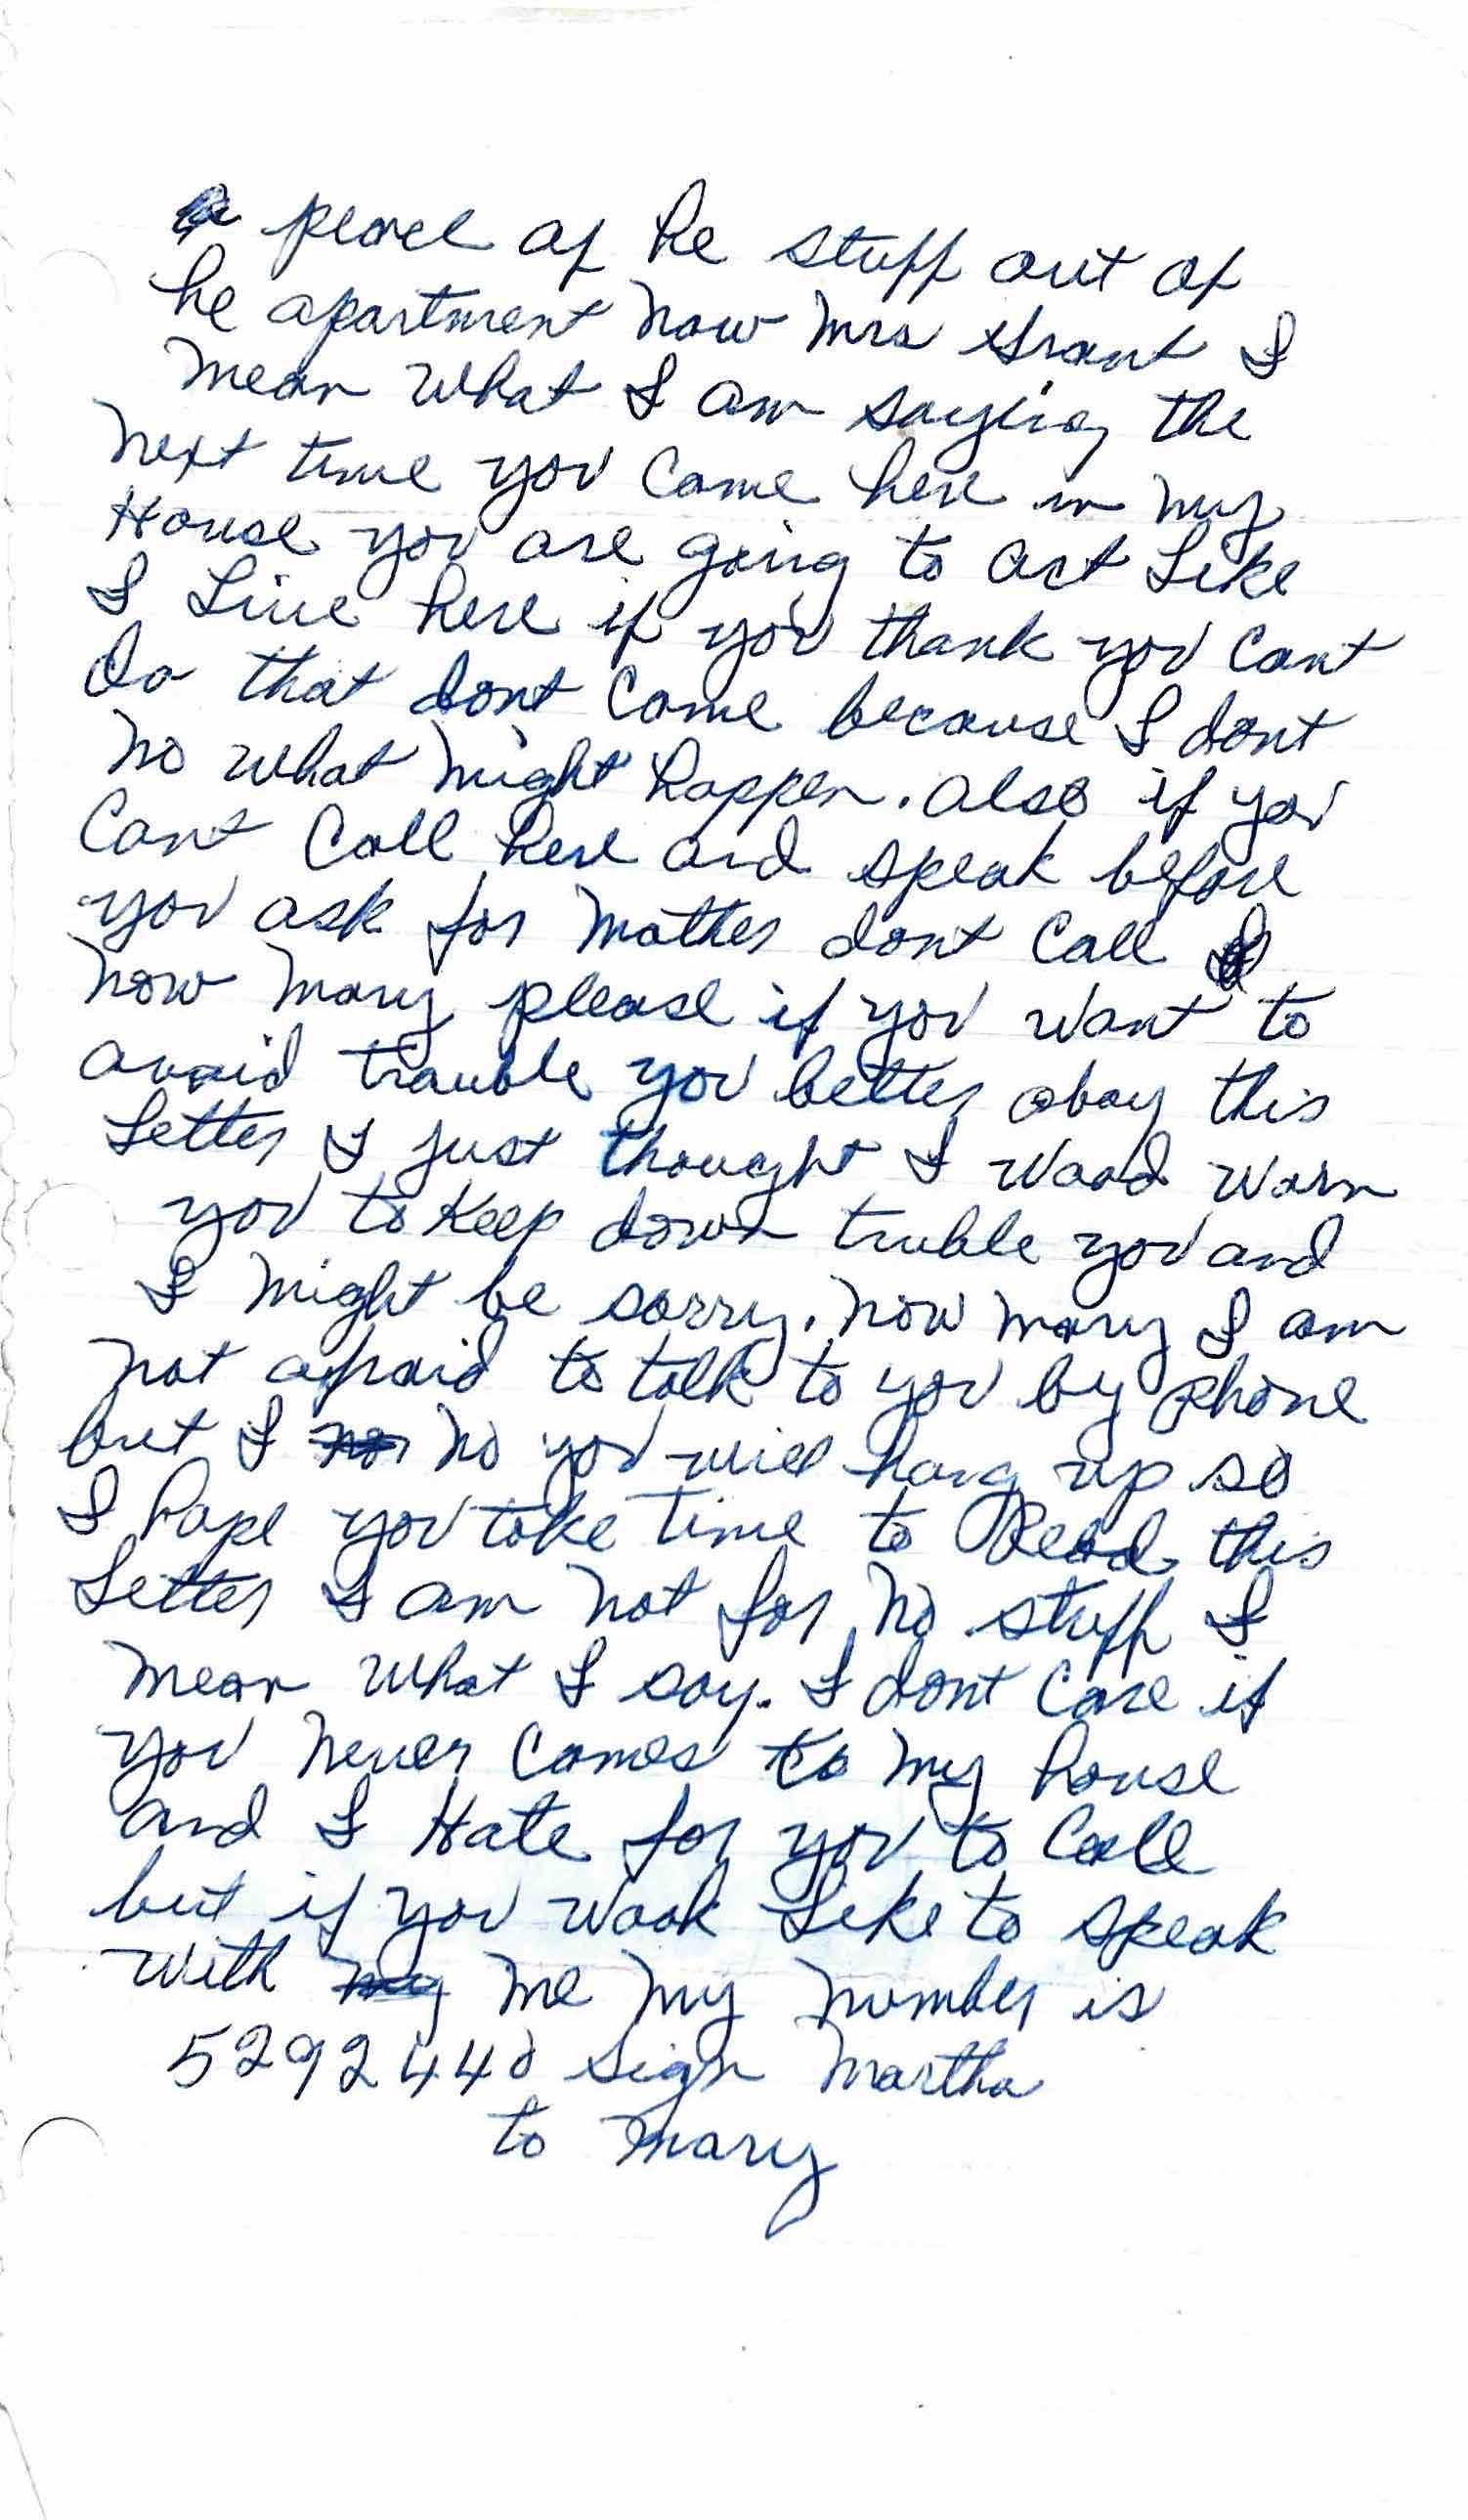 a pearel of he stuff out of
he apartment now Mrs Grant I
mean what I am saying the
next time you come here in my
House you are going to act Like
I Live here if you thank you cant
do that dont come because I dont
no what might happen. also if you
cant call here and speak before
you ask for Mother dont call
now Mary please if you want to
avoid trauble you better obay this
Letter I just thought I Wood warn
you to Keep down truble you and
I might be sorry. now Mary I am
not afraid to talk to you by phone
but I no you will hang up so
I hope you take Time to Read this
Letter I am not for no stuff I
mean what I say. I dont care if
you never comes to my house
and I Hate for you to call
but if you wook Like to speak
with me my number is
5292440 sign Martha
to Mary